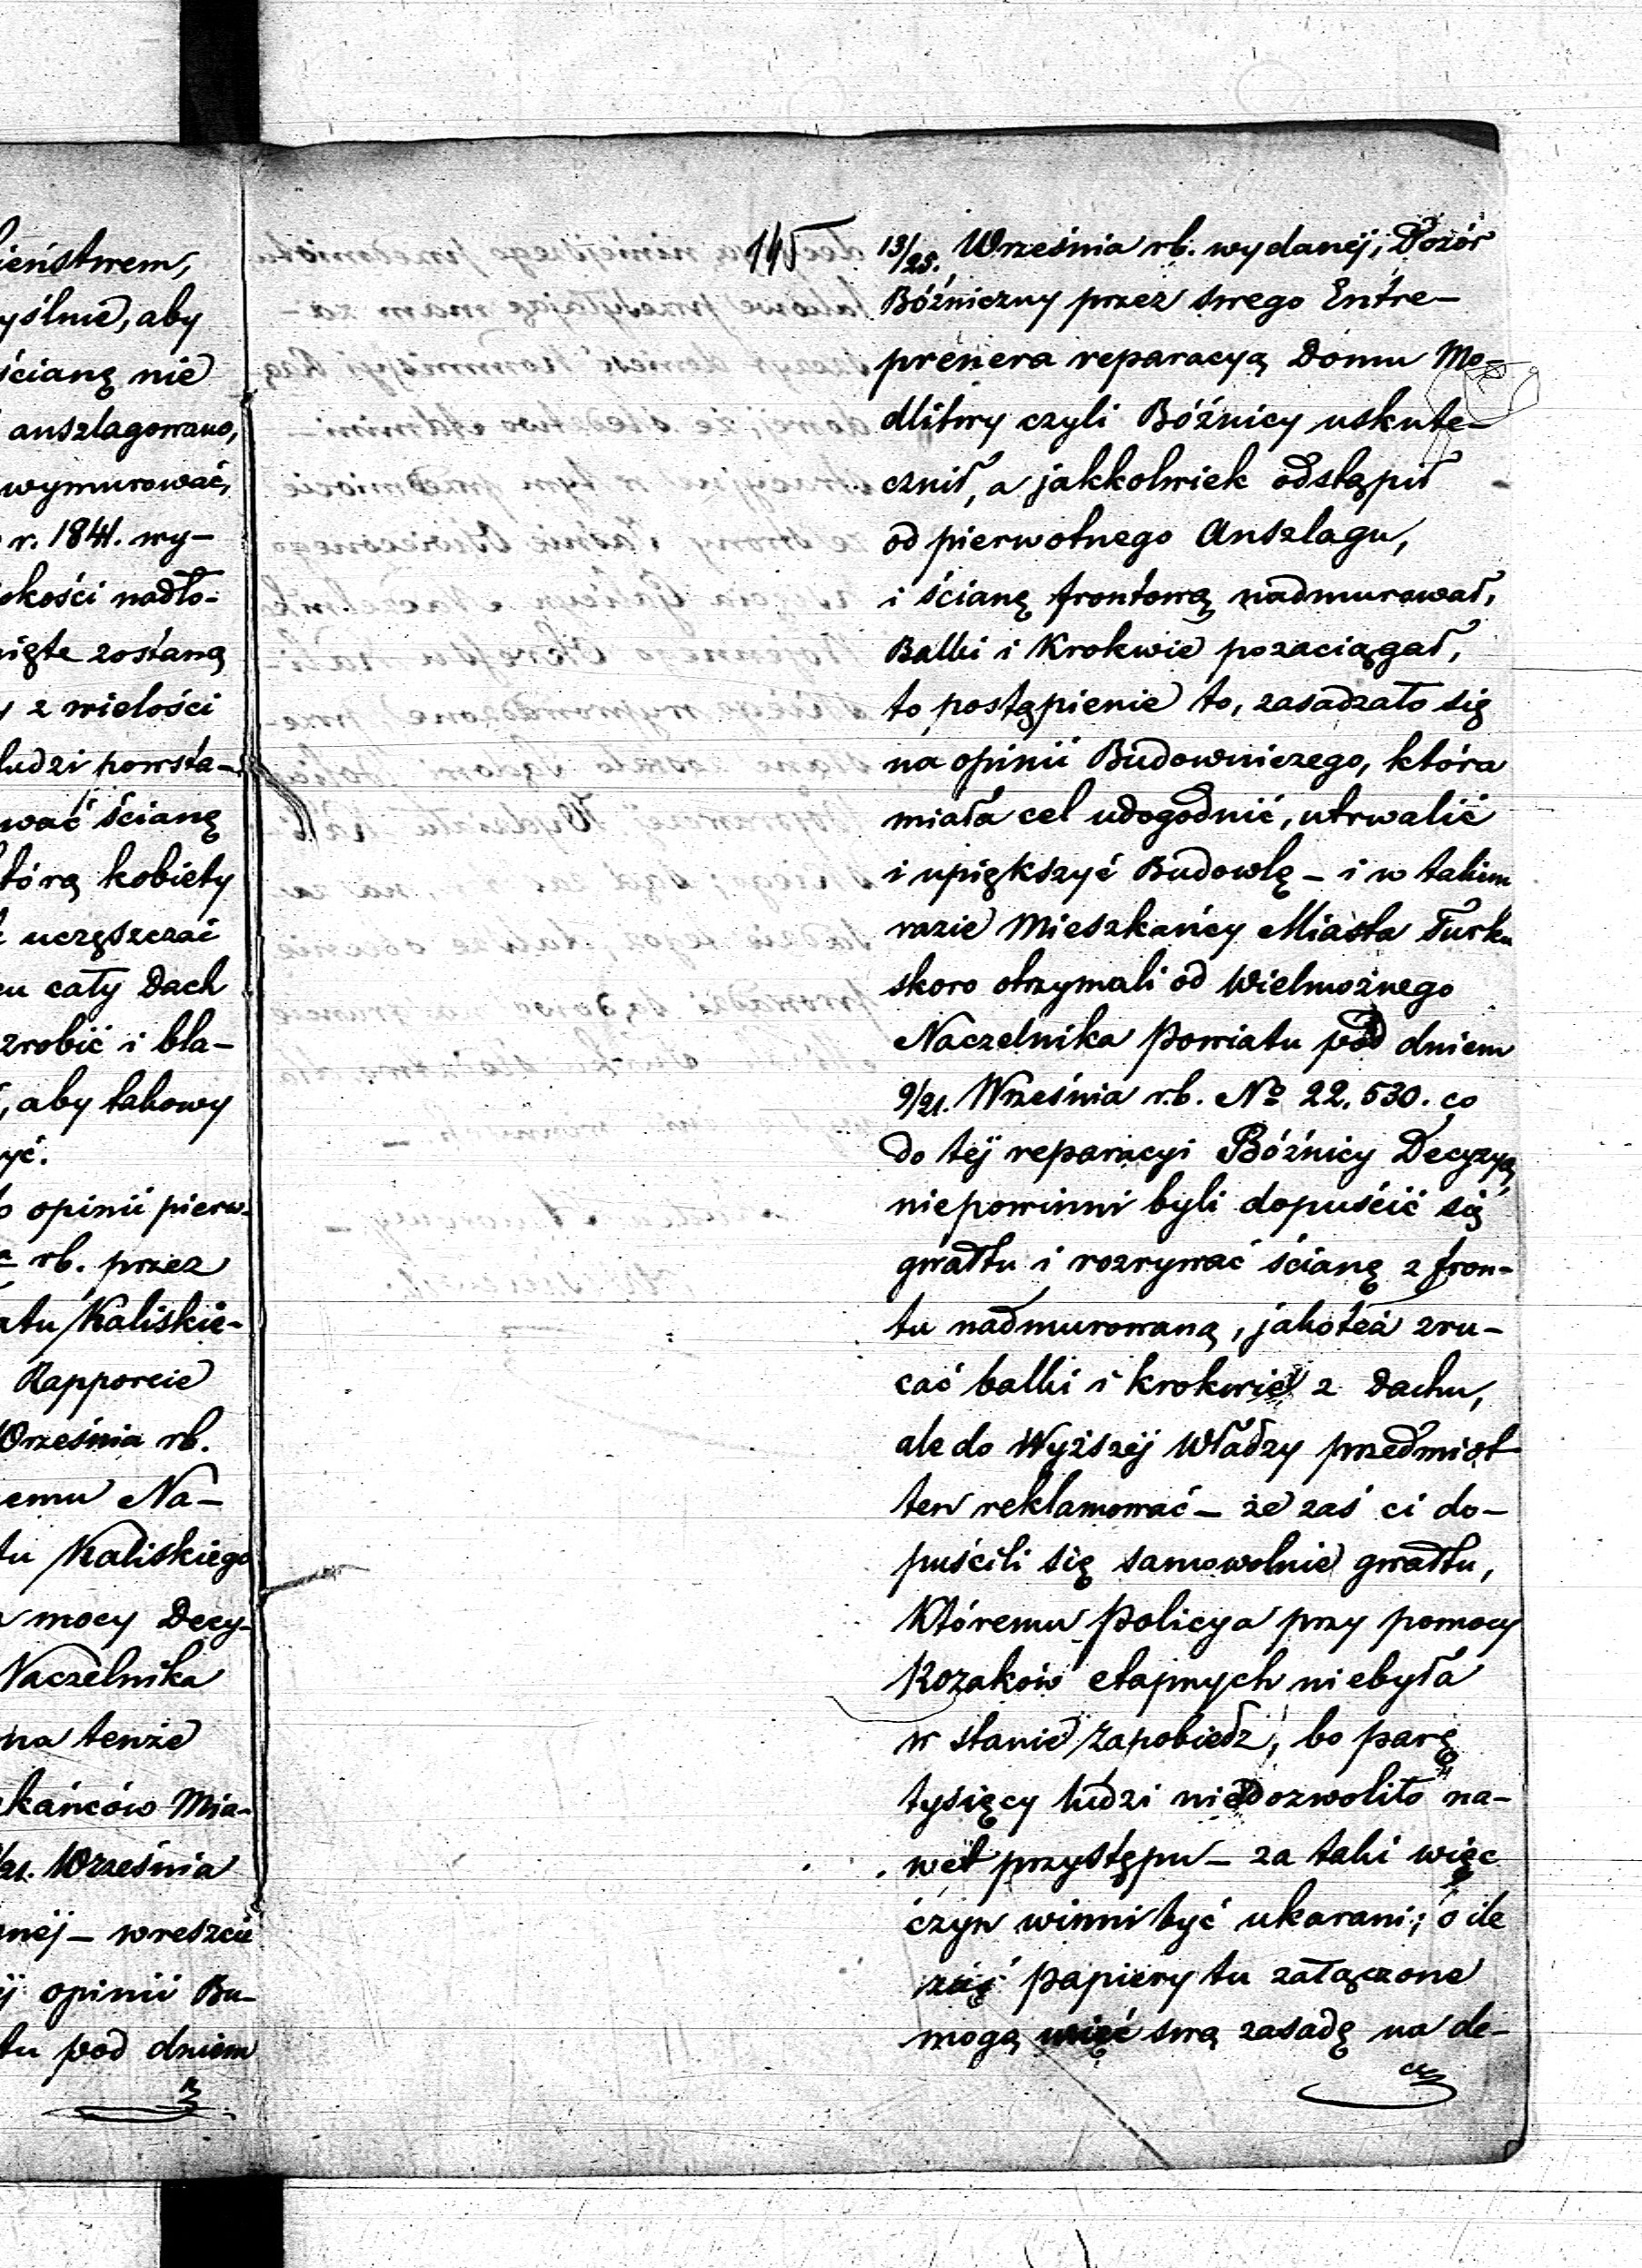 ieństwem,
yślnie, aby
ścianę nie
anszlagowano,
wymurować,
r. 1841. wy-
okości nadło-
nięte zostaną
z wielości
ludzi powsta-
wać ścianę
tórą kobiety
uczęszczać
cały Dach
zrobić i bla-
, aby takowy
yć.
opinii pierw-
rb. przez
atu Kaliskie-
Rapporcie
Września rb.
emu Na-
tu Kaliskiego
mocy Decy-
Naczelnika
na tenże
kańców Mia-
/21. Września
néj – wreszcie
opinii Bu-
tu pod dniem
145
13/25. Września rb. wydanéj, Dozór
Bóźniczny przez swego Entre-
prenera reparacyą Domu Mo-
dlitwy czyli Bóźnicy uskute-
cznił, a jakkolwiek odstąpił
od pierwotnego Anszlagu,
i ścianę frontową nadmurował,
Balki i Krokwie pozaciągał,
to postąpienie to, zasadzało się
na opinii Budowniczego, która
miała cel udogodnić, utrwalić
i upiększyć Budowlę – i w takiem
razie Mieszkańcy Miasta Turku
skoro otrzymali od Wielmożnego
Naczelnika Powiatu pod dniem
9/21. Września r.b. No 22,530. co
do téj reparacyi Bóźnicy Decyzyą
niepowinni byli dopuścić się
gwałtu i rozrywać ścianę z fron-
tu nadmurowaną, jakoteż zru-
cać balki i krokwie z Dachu,
ale do Wyższéj Władzy przedmiot
ten reklamować – że zaś ci do-
puścili się samowolnie gwałtu,
Któremu Policya przy pomocy
Kozaków etapnych niebyła
w stanie zapobiedz, bo parę
tysięcy ludzi niedozwoliło na-
wet przystępu – za taki więc
czyn winni być ukarani; o ile
zaś papiery tu załączone
mogą mieć swą zasadę na de-